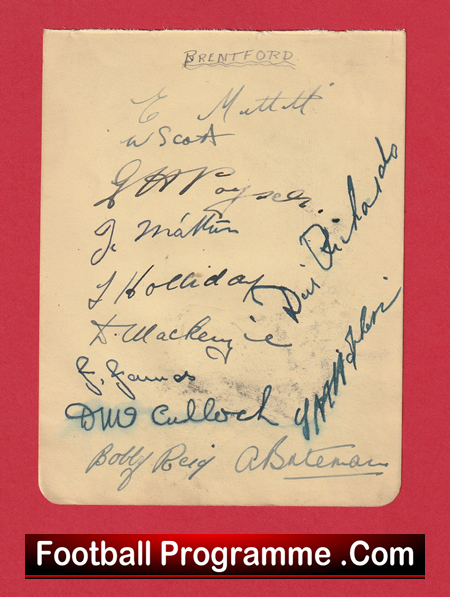 BRENTFORD
E Muttitt
W Scott
G H R Poyser.
J. Mathieson
J Holliday
D. Mackenzie
Dai Richards
D McCulloch
Bobby Reid
A Bateman
Football Programme .Com